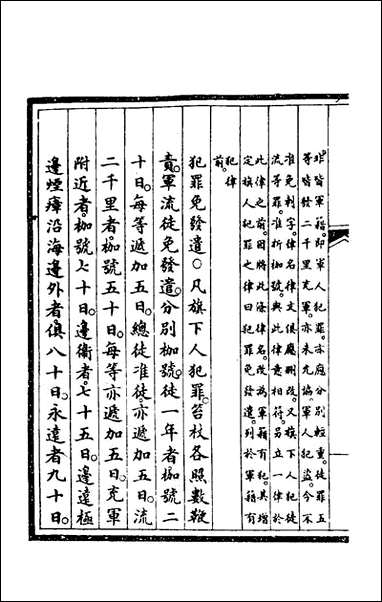 非皆軍籍。即軍人犯罪。亦應分別輕重。徒罪五
等皆發二千里充軍。亦未允協。軍人犯盜。今不
准免刺字。律名律文俱應刪改。又旗下人犯徒
流等罪。准折枷號。與此律意相符。另立一條於
此律之前。因將此條律名。改為軍籍有犯。其增
定旗人犯罪之律曰犯罪免發遣。列於軍籍有
犯律
前。
犯罪免發遣○凡旗下人犯罪。笞杖各照數鞭
責。軍流徒免發遣。分別枷號。徒一年者枷號二
十日。每等遞加五日。總徒准徒。亦遞加五日。流
二千里者。枷號五十日。每等亦遞加五日。充軍
附近者。枷號七十日。邊衛者。七十五日。邊遠極
邊煙瘴沿海邊外者。俱八十日。永遠者九十日。